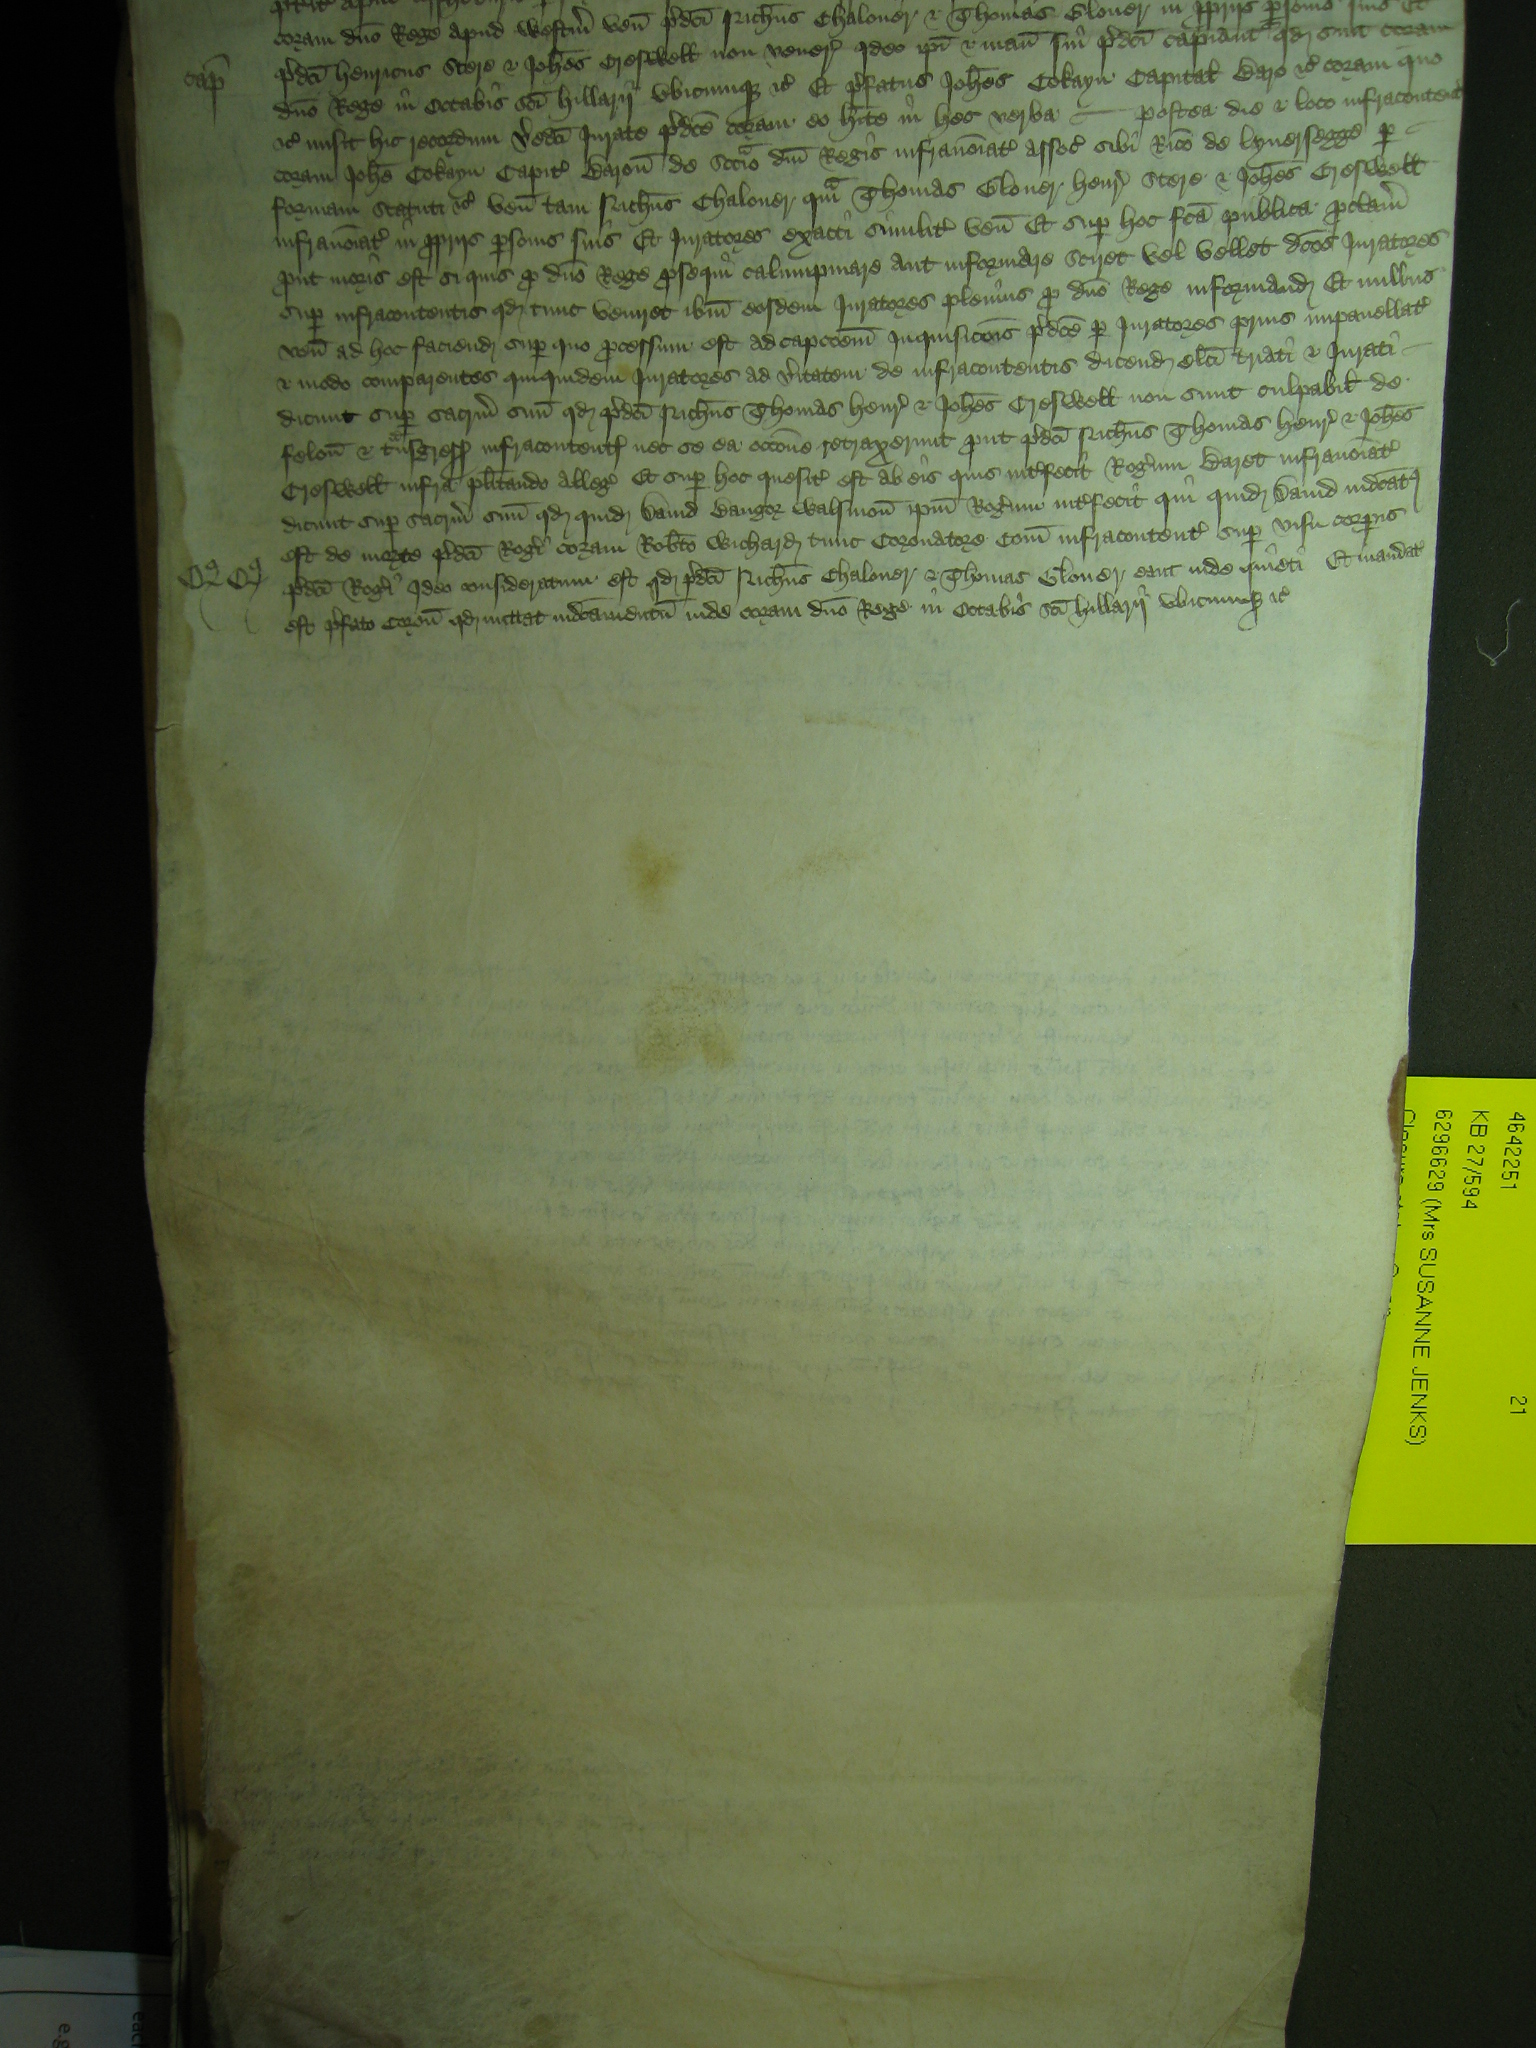 coram dno Rege apud Westm ven pdci Ricus Chaloner & Thomas Glover in ppriis psonis suis Et
pdci Henricus Stere & Johes Creswell non vener Ideo ipi & man sui pdci capiant qd sint coram
cap
dno Rege in Octabis sci Hillarij ubicumq &c Et pfatus Johes Cokayn Capital Baro &c coram quo
&c misit hic recordum vedci Jurate pdce coram eo hite in hec verba Postea die & loco infracontent
coram Johe Cokayn Capit Baron de sccio dni Regis infranoiat assoc sibi Rico de Lynersegge p
formam statuti &c ven tam Ricus Chaloner qm Thomas Glover Henr Stere & Johes Creswell
infranoiat in ppriis psonis suis Et Juratores exacti similit ven Et sup hoc fca publica pclam
put moris est si quis p dno Rege psequi calumpniare aut informare sciret vel vellet dcos Juratores
sup infracontentis qd tunc veniret ibm eosdem Juratores plenius p dno Rege informand Et nullus
ven ad hoc faciend sup quo pcessum est ad capcoem Inquisicois pdce p Juratores prius impanellat
& modo comparentes quiquidem Juratores ad vitatem de infracontentis dicend elci triati & Jurati
dicunt sup sacrm suu qd pdci Ricus Thomas Henr & Johes Creswell non sunt culpabil de
felon & tnsgress infracontent nec se ea occone retraxerunt put pdci Ricus Thomas Henr & Johes
Creswell infra plitando alleg Et sup hoc quesit est ab eis quis intfecit Rogum Baret infranoiat
dicunt sup sacrm suu qd quid David Bangor Walsmon ipm Rogum intfecit qui quid David indcatus
est de morte pdci Rogi coram Robto Wichard tunc Coronatore Com infracontent sup visu corpis
Q9 Q9
pdci Rogi Ideo consideratum est qd pdci Ricus Chaloner & Thomas Glover eant inde quieti Et mandat
est pfato Coron qd mittat indcamentu inde coram dno Rege in Octabis sci Hillarij ubicumq &c
4642251 21
KB 27/594
6296629 (Mrs SUSANNE JENKS)